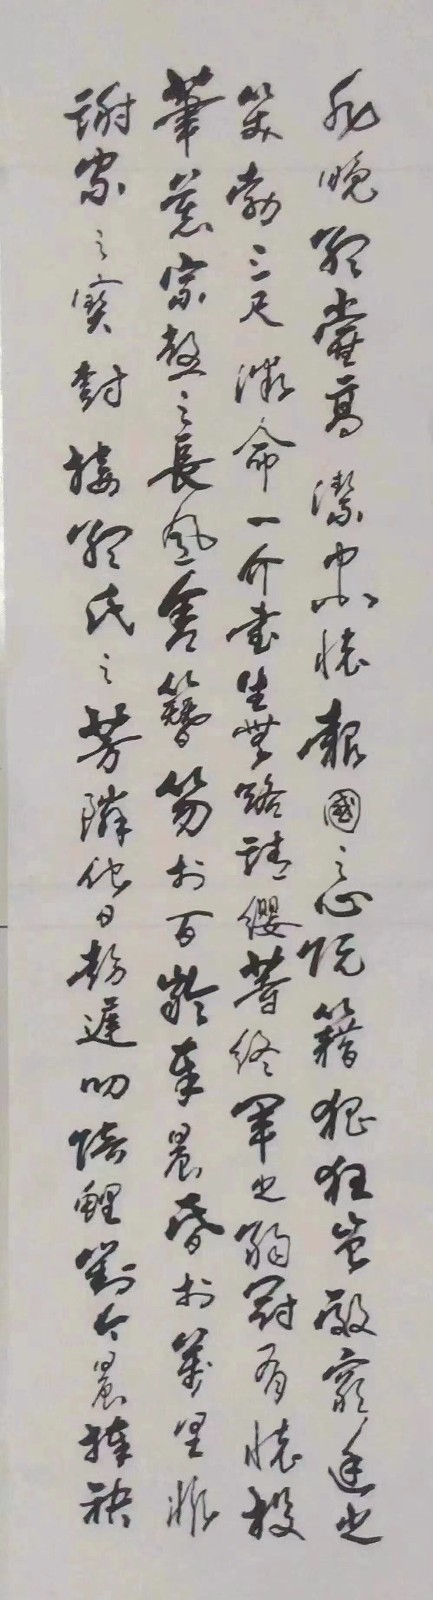 非晚孟嘗高潔空懷報國之心阮籍猖狂豈效窮途之
哭勃三尺微命一介書生無路請纓等終軍之弱冠有懷投
筆慕宗愨之長風舍簪笏於百齡奉晨昏於萬里非
謝家之寶樹接孟氏之芳鄰他日趨庭叨陪鯉對今晨捧袂